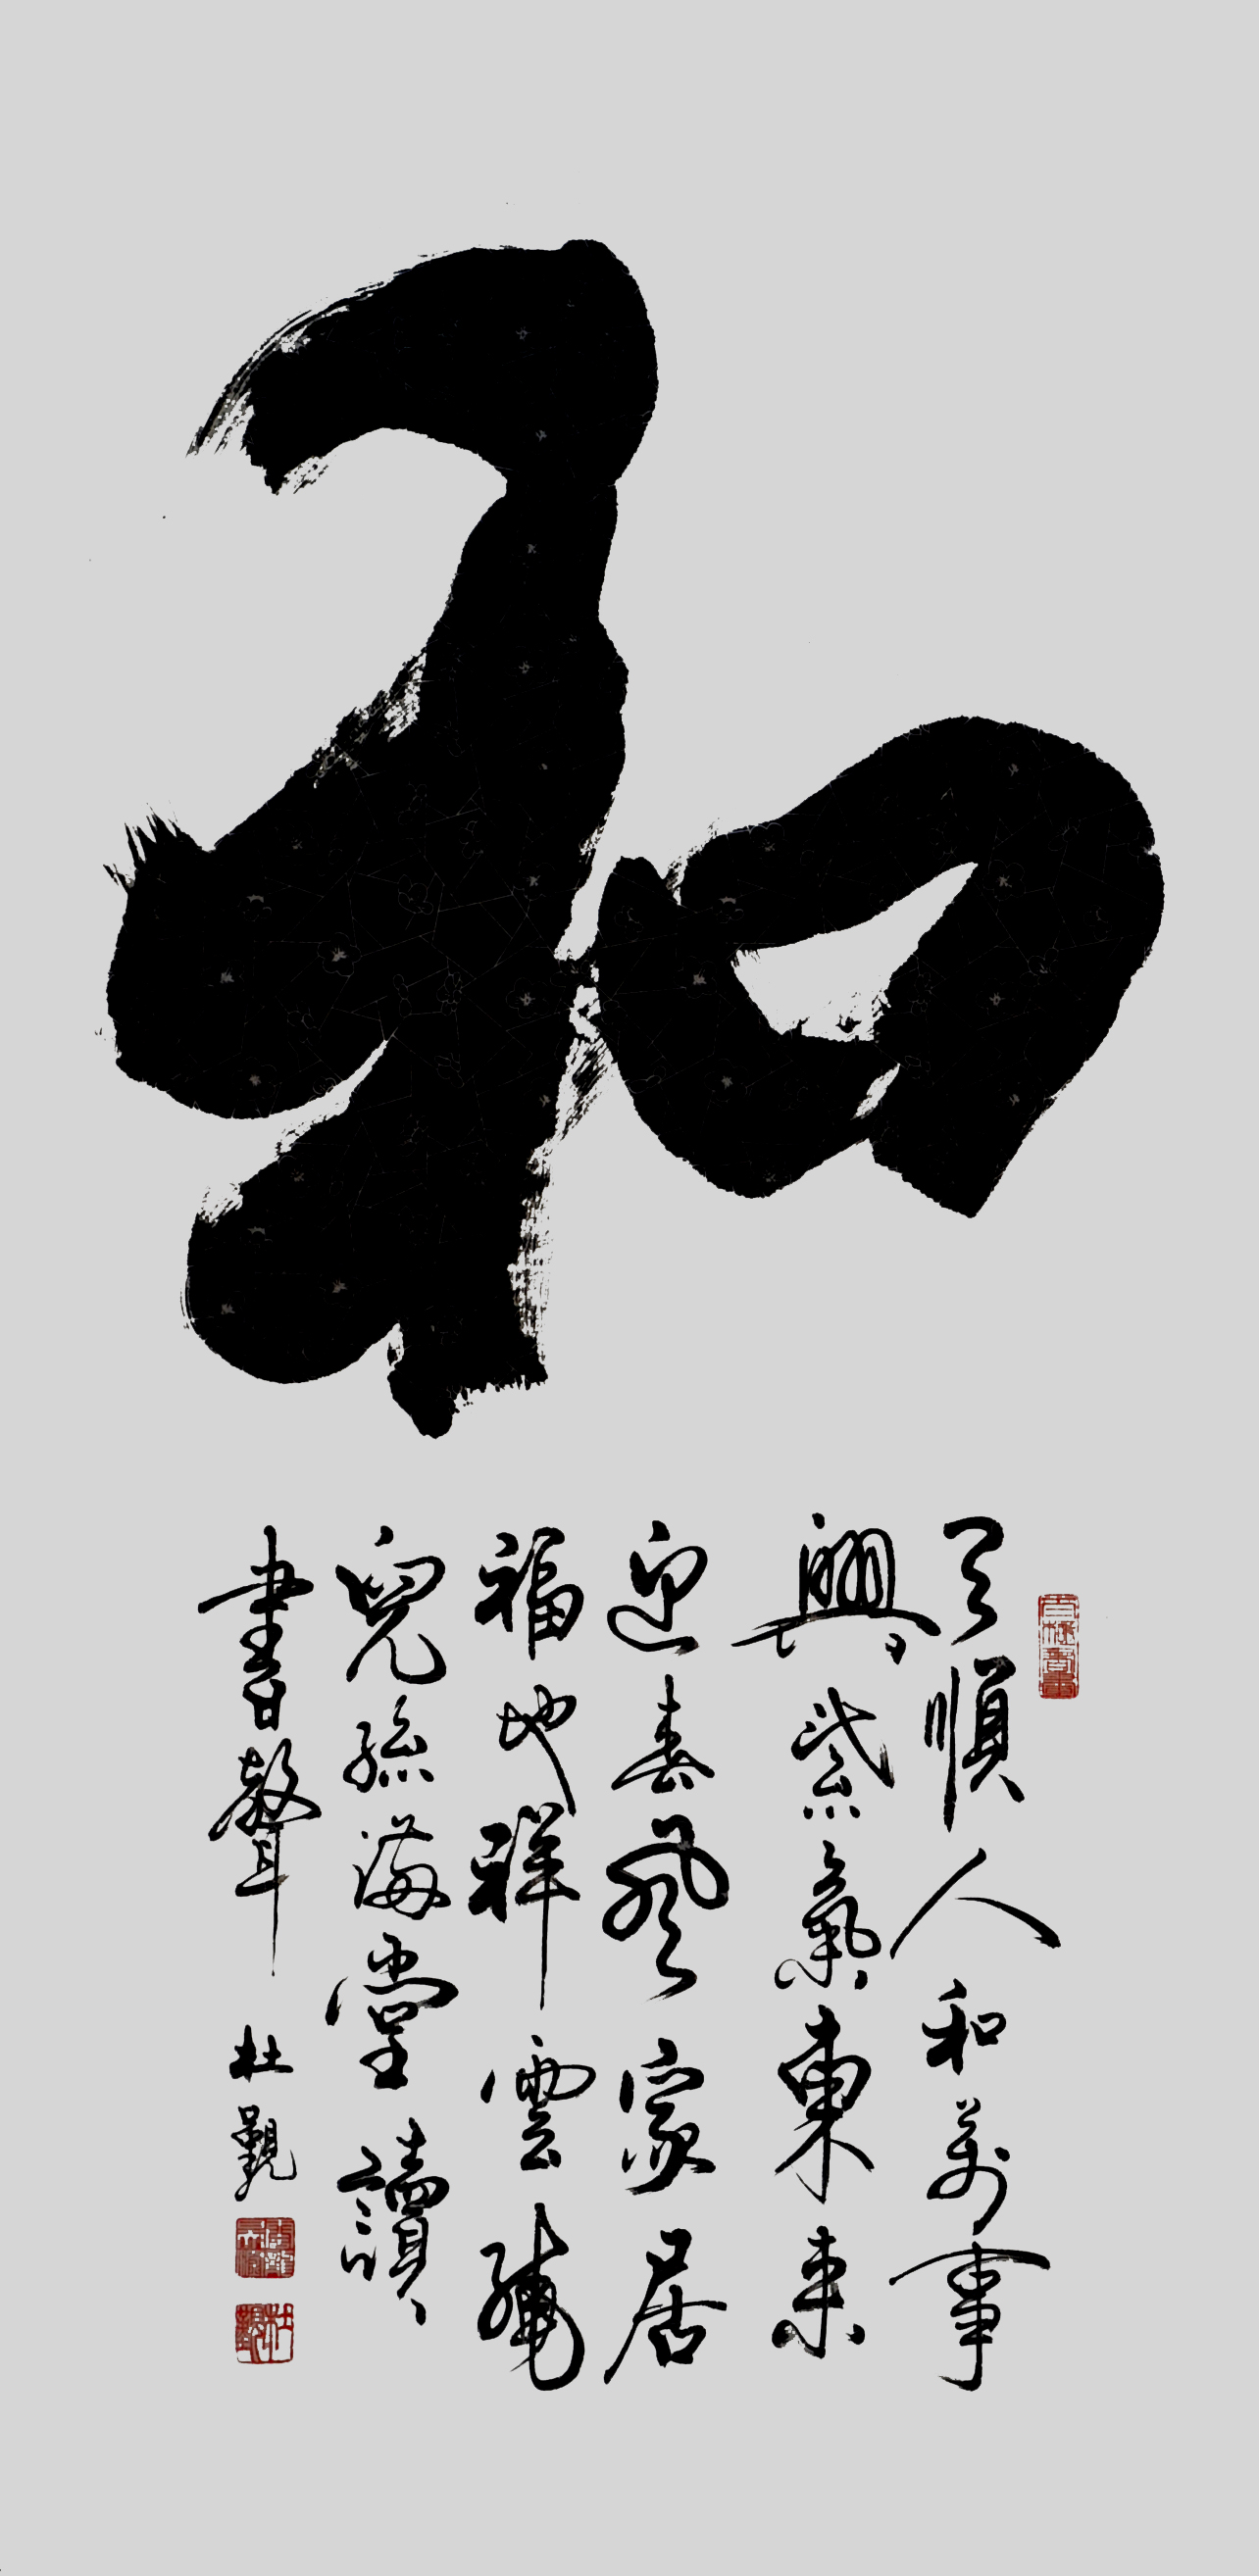 和
天順人和萬事
興紫氣東来
迎春風家居
福地祥雲繞
兒孫滿堂讀
書聲
杜觀